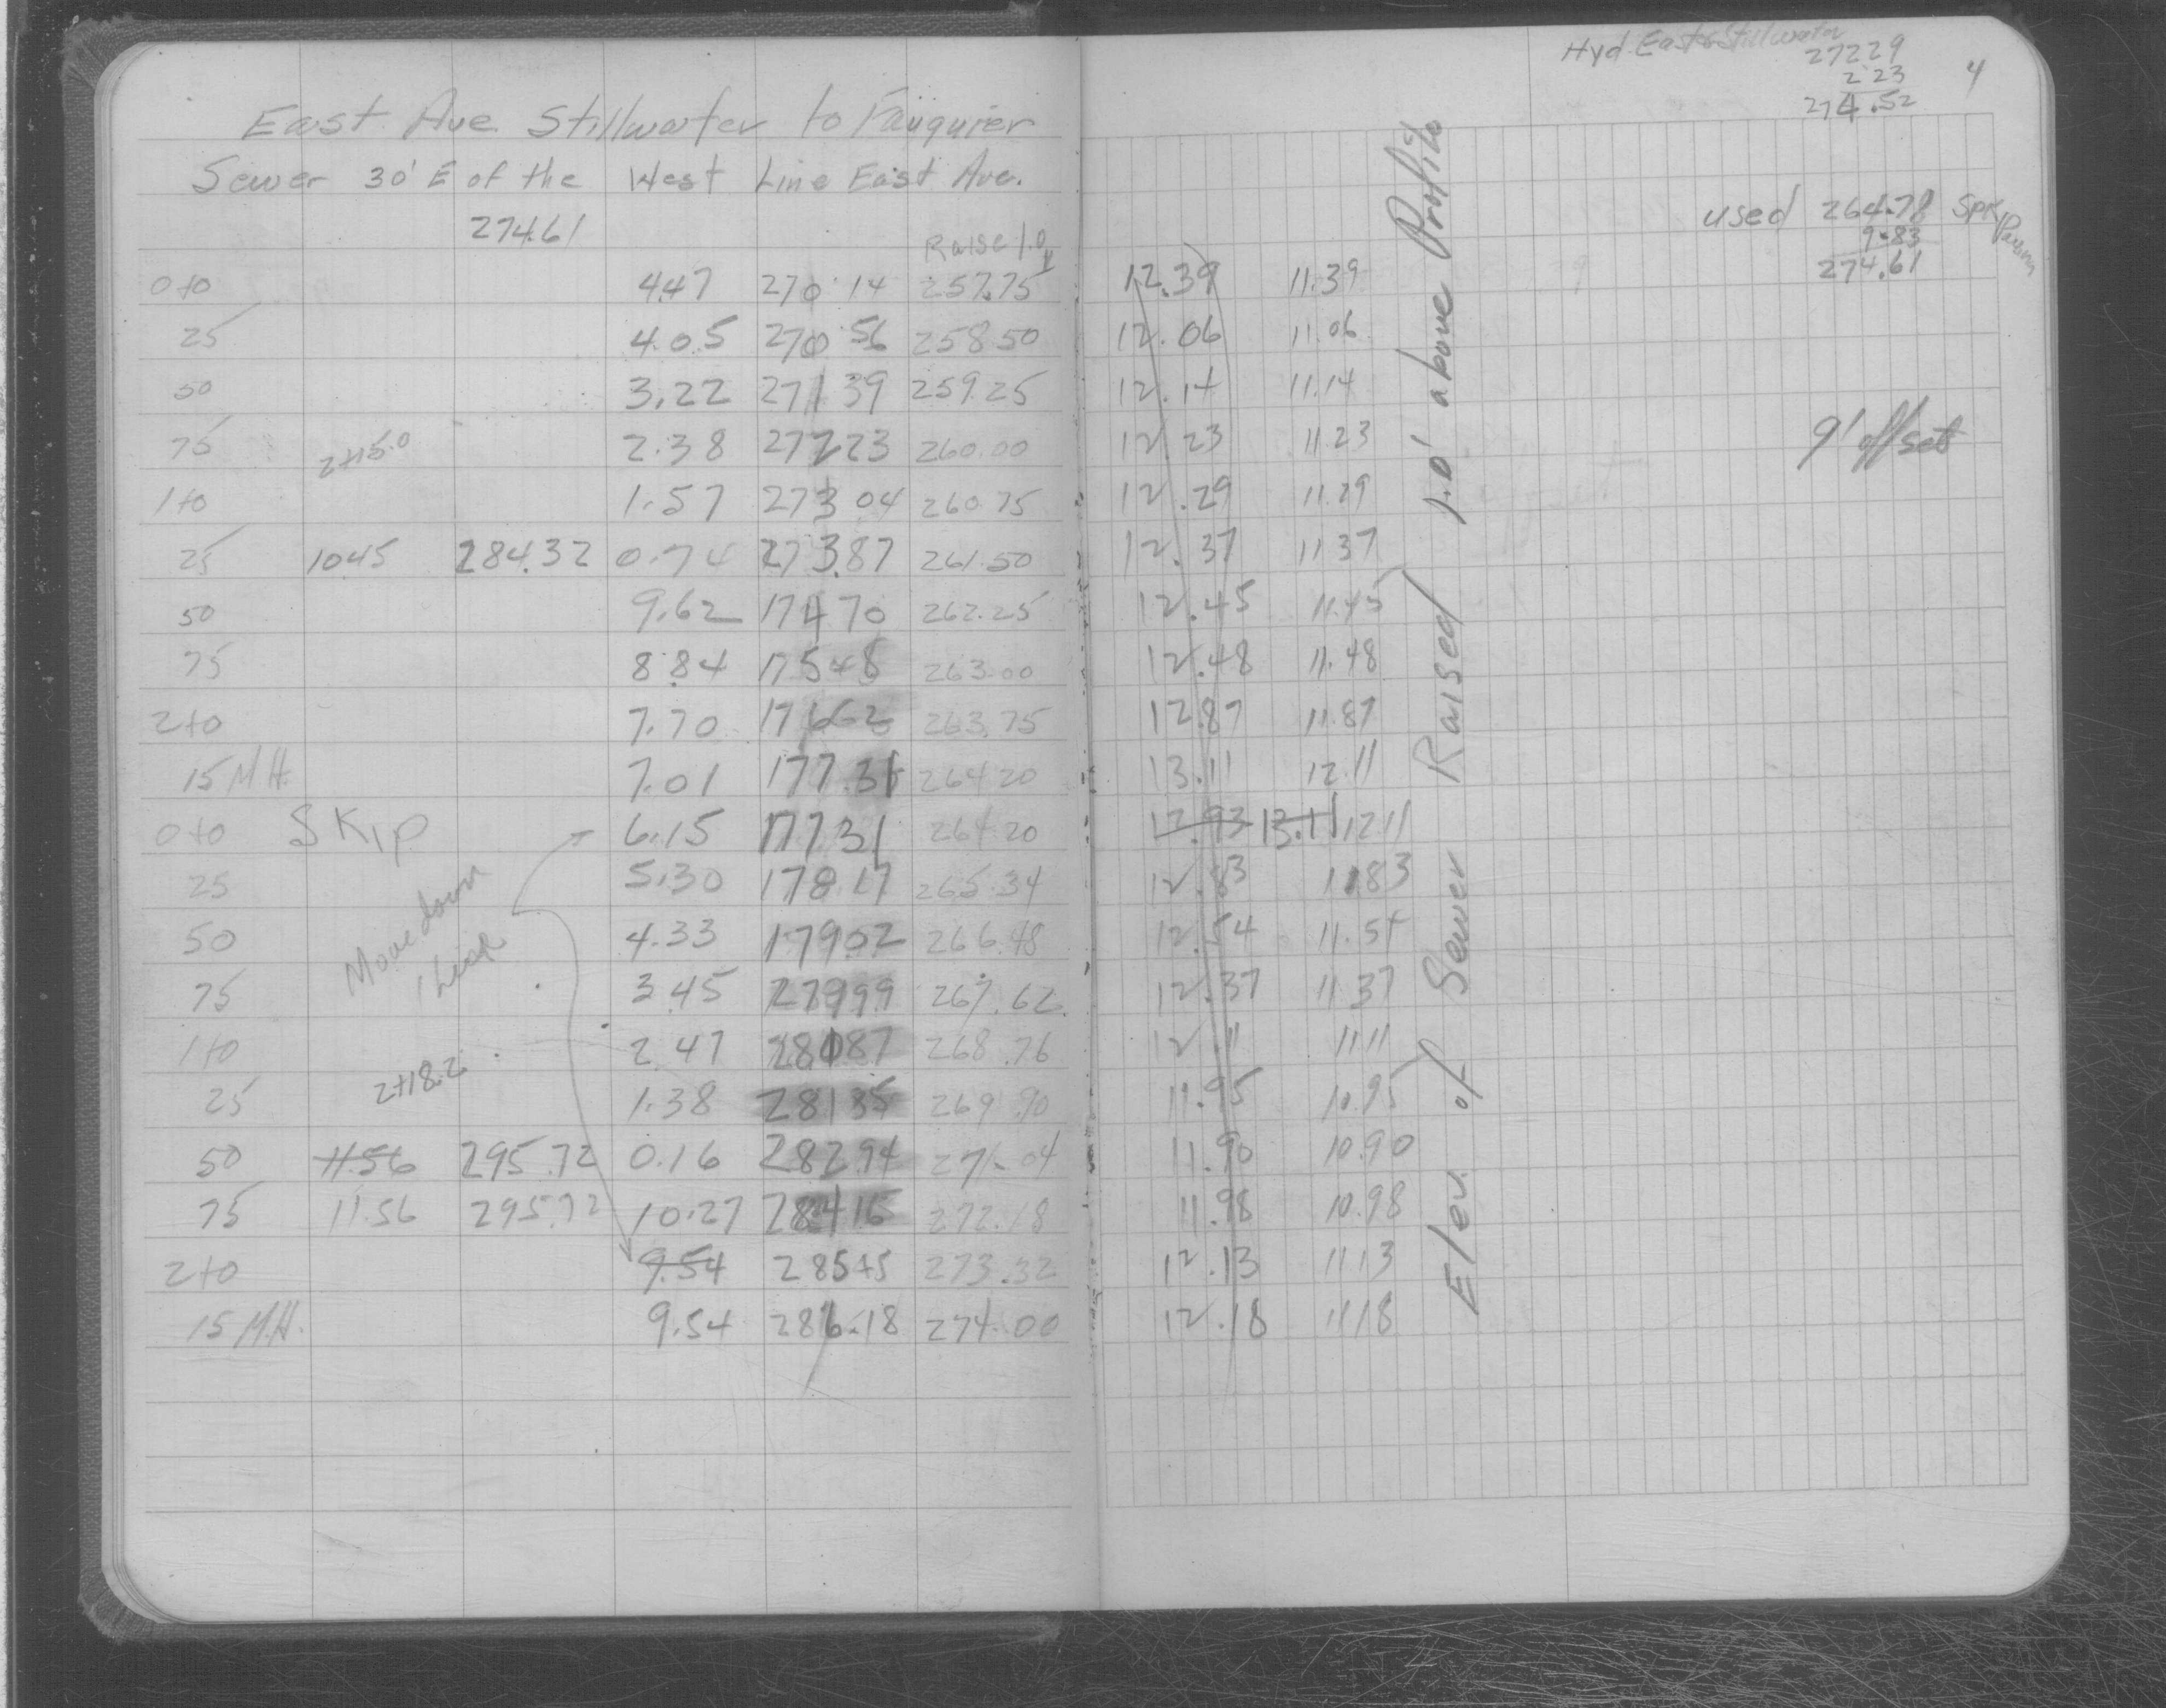 East Ave. Stillwater to Fauquier
Sewer 30' E of the West Line East Ave.
274.61
Raise 1.0
0+0 4.47 270 14 257.75
25 4.05 270 56 258 50
50 3.22 271 39 259.25
75 2+15.0 2.38 272 23 260.00
1+0 1.57 273 04 260 75
25 10.45 284.32 0.74 273.87 261.50
50 9.62 174 70 262.25
75 8.84 175 48 263.00
2+0 7.70 176 62 263.75
15 M.H. 7.01 177.31 264 20
0+0 Skip 6.15 177 31 264 20
25 5.30 178.17 265.34
50 4.33 179 02 266.48
75 3.45 279 99 267.62
1+0 2.47 280 87 268.76
25 1.38 281 85 269 90
50 11.56 295.72 0.16 282 94 271.04
75 11.56 295.72 10.27 284 16 272.18
2+0 9.54 285 45 273.32
15 M.H. 9.54 286.18 274.00
Move down
2+18.2
Hyd East & Stillwater
4
272 29
2 23
274.52
used 264.78 Spk
9.83
274.61
12.39 11.39
12.06 11.06
12.14 11.14
12.23 11.23
12.29 11.29
12.37 11 37
12.45 11.45
12.48 11.48
12.87 11.87
13.11 12.11
12.93 13.11 12 11
12.83 11 83
12.54 11.54
12.37 11 37
12.11 11 11
11.95 10.95
11.90 10.90
11.98 10.98
12.13 11 13
12.18 11 18
Elev. of Sewer Raised 1.0' above Profile
9' offset